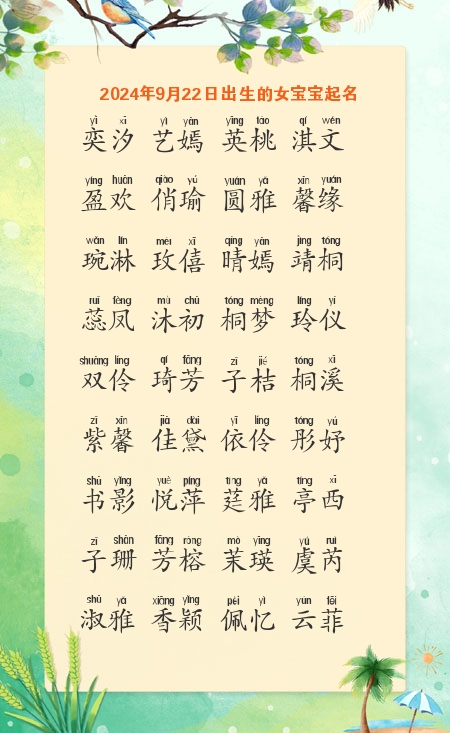 2024年9月22日出生的女宝宝起名
yì xī yì yān yīng táo qí wén
奕汐 艺嫣 英桃 淇文
yíng huān qiào yú yuán yǎ xīn yuán
盈欢 俏瑜 圆雅 馨缘
wǎn lín méi xī qíng yān jìng tóng
琬淋 玫僖 晴嫣 靖桐
ruǐ fèng mù chū tóng mèng líng yí
蕊凤 沐初 桐梦 玲仪
shuāng líng qí fāng zǐ jié tóng xī
双伶 琦芳 子桔 桐溪
zǐ xīn jiā dài yī líng tóng yú
紫馨 佳黛 依伶 彤妤
shū yǐng yuè píng tíng yǎ tíng xī
书影 悦萍 莛雅 亭西
zǐ shān fāng róng mò yīng yú ruì
子珊 芳榕 茉瑛 虞芮
shū yǎ xiāng yǐng pèi yì yún fēi
淑雅 香颖 佩忆 云菲